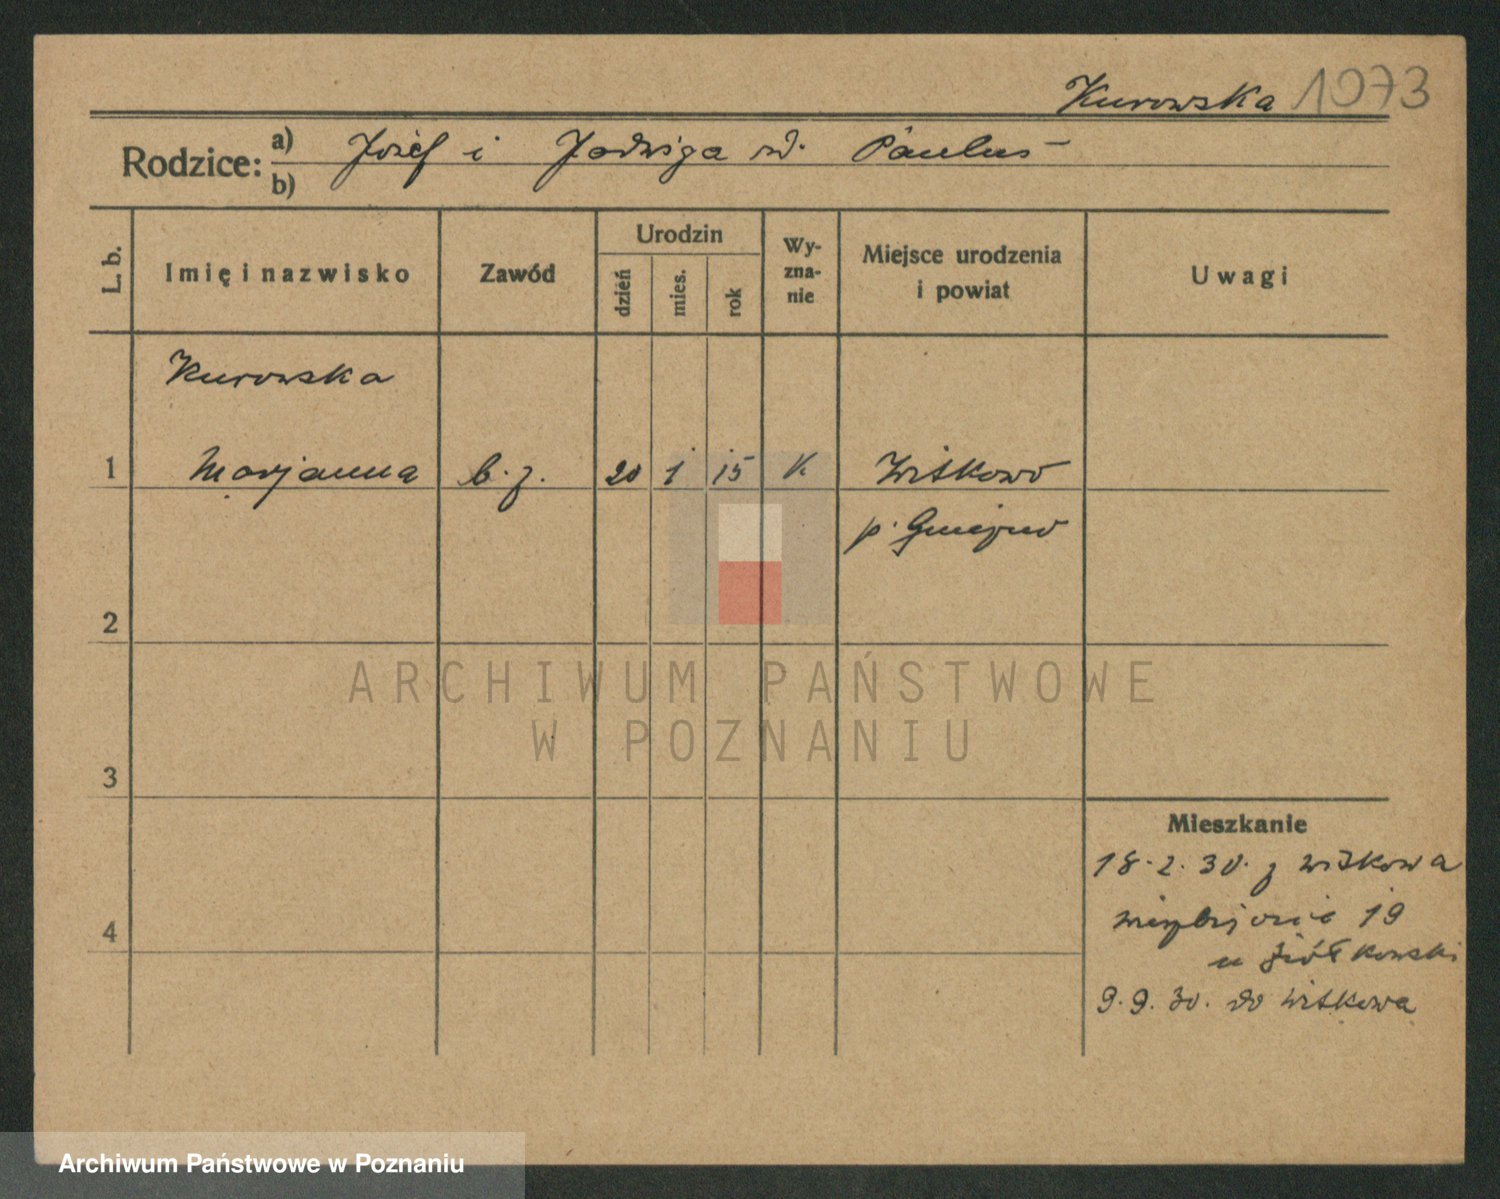 Kurowska 1073
Rodzice: a) Józef i Jadwiga rd. Paulus
b)
L. b.
Imię i nazwisko
Zawód
Urodzin
dzień
mies.
rok
Wy-
zna-
nie
Miejsce urodzenia
i powiat
Uwagi
Kurowska
1 Marjanna b. z. 20 1 15 k. Witkowo
p. Gniezno
2
3
4
ARCHIWUM PAŃSTWOWE
W POZNANIU
Mieszkanie
18.2.30. z Witkowa
19
u Ziółkowski
9.9.30. do Witkowa
Archiwum Państwowe w Poznaniu